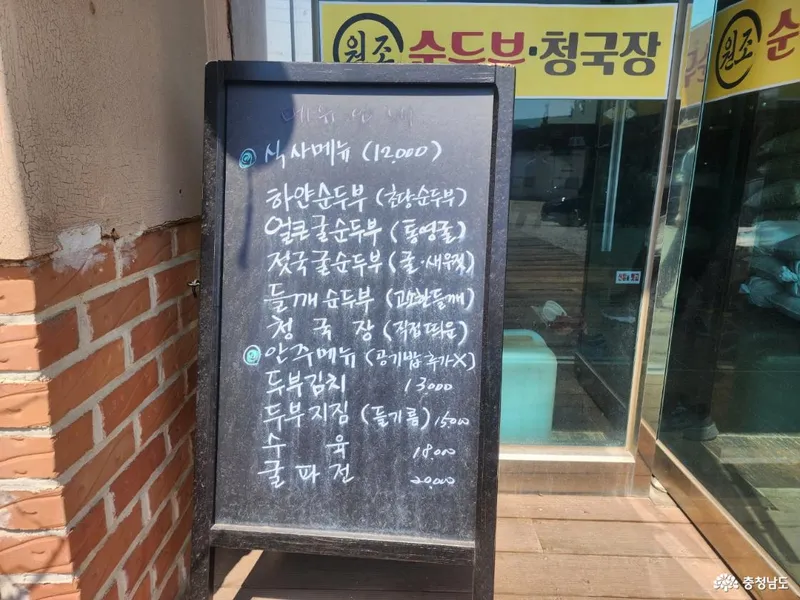 원조 순두부·청국장
원조 순
메뉴
식사메뉴 (12.000)
하얀순두부 (초당순두부)
얼큰굴순두부 (통영굴)
젓국굴순두부 (굴·새우젓)
들깨순두부 (고소한들깨)
청국장 (직접띄운)
안주메뉴 (공기밥 추가X)
두부김치 13000
두부지짐 (들기름) 15000
수육 18.000
굴파전 20.000
충청남도